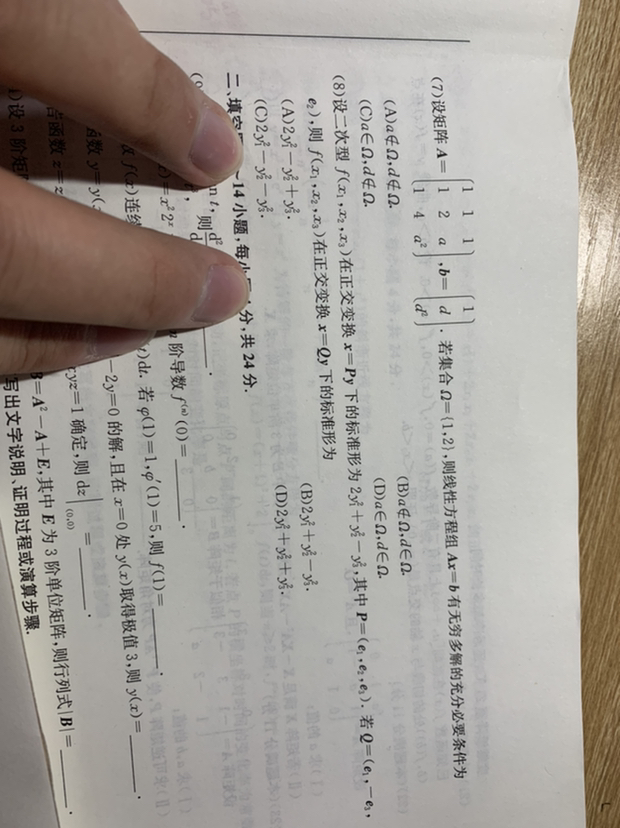 (7)设矩阵 A=(1 1 1; 1 2 a; 1 4 a²), b=(1; d; d²). 若集合 Ω={1,2},则线性方程组 Ax=b 有无穷多解的充分必要条件为
(A)a∉Ω,d∉Ω. (B)a∉Ω,d∈Ω.
(C)a∈Ω,d∉Ω. (D)a∈Ω,d∈Ω.
(8)设二次型 f(x₁,x₂,x₃)在正交变换 x=Py 下的标准形为 2y₁²+y₂²-y₃²,其中 P=(e₁,e₂,e₃). 若 Q=(e₁,-e₃,
e₂),则 f(x₁,x₂,x₃)在正交变换 x=Qy 下的标准形为
(A)2y₁²-y₂²+y₃². (B)2y₁²+y₂²-y₃².
(C)2y₁²-y₂²-y₃². (D)2y₁²+y₂²+y₃².
二、填空 14 小题,每小 分,共 24 分.
t,则 d²
=x²2ˣ 阶导数 f⁽ⁿ⁾(0)=______.
f(x)连续 dt. 若 φ(1)=1,φ′(1)=5,则 f(1)=______.
函数 y=y( -2y=0 的解,且在 x=0 处 y(x)取得极值 3,则 y(x)=______.
函数 z=z xyz=1 确定,则 dz|(0,0) =______.
设 3 阶矩 B=A²-A+E,其中 E 为 3 阶单位矩阵,则行列式|B|=______.
写出文字说明、证明过程或演算步骤.